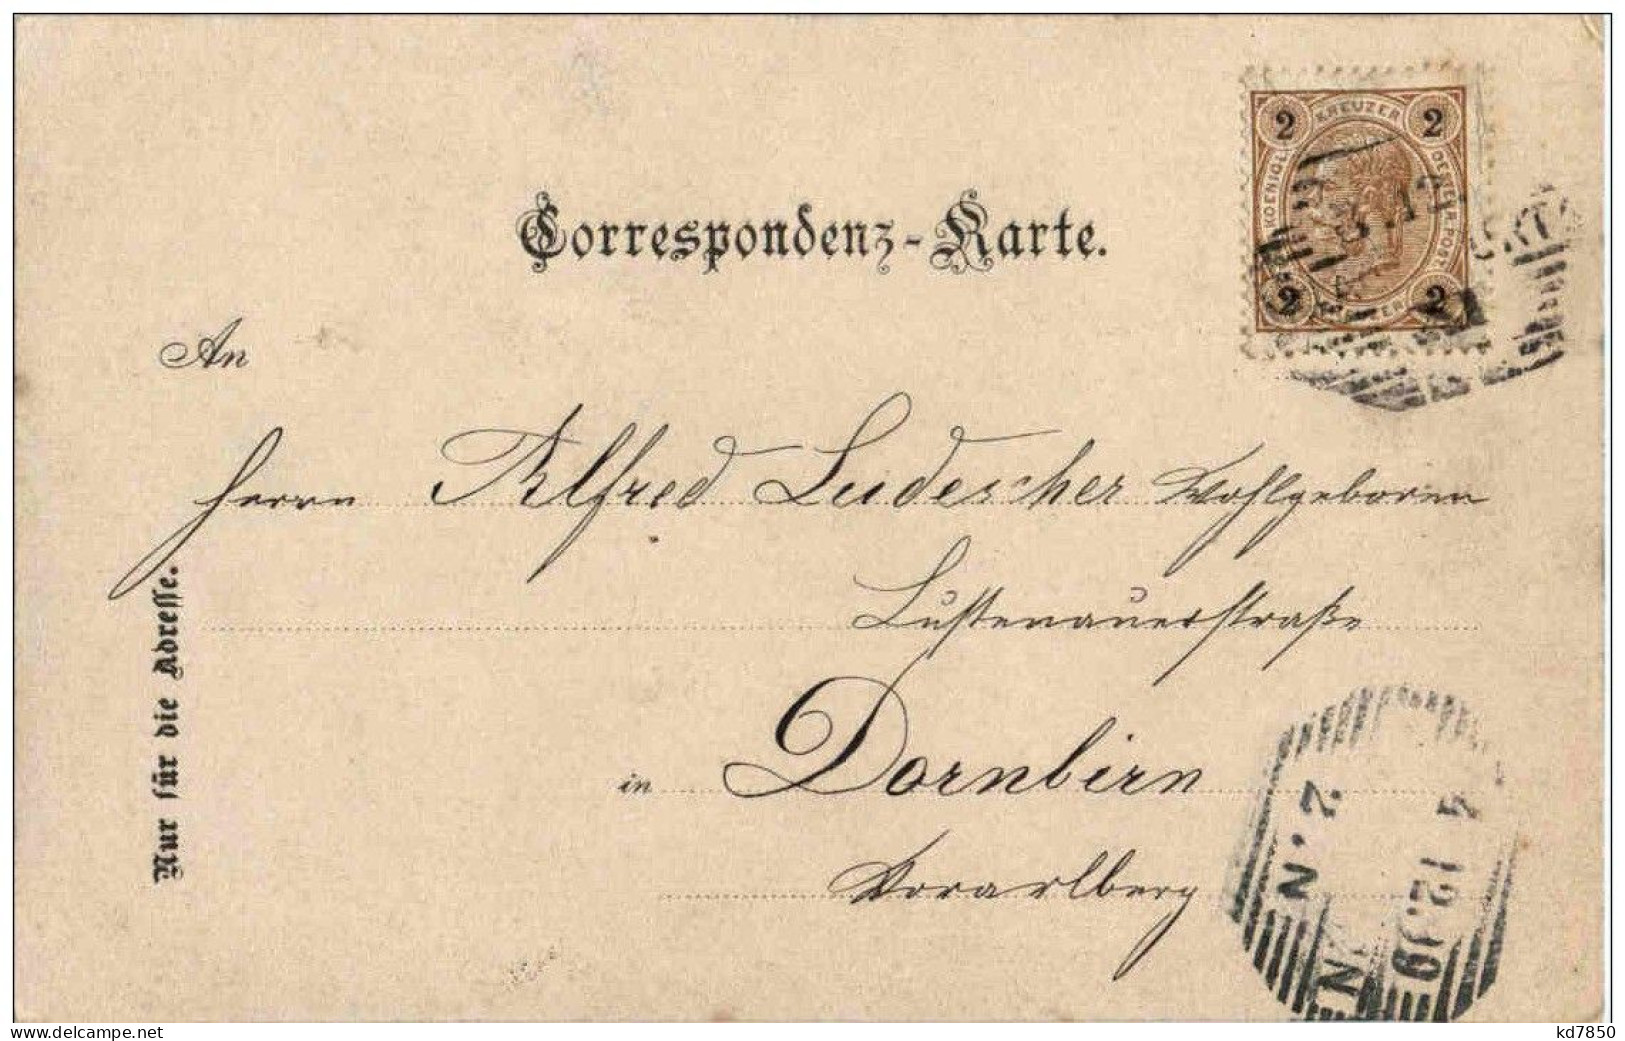 Correspondenz-Karte.
2 KREUZER 2
2 2
3.12
An
Herrn Alfred Ludescher Wohlgeboren
Lustenauerstraße
in Dornbirn
Vorarlberg
Nur für die Adresse.
4 12.99
2.N
www.delcampe.net
kd7850